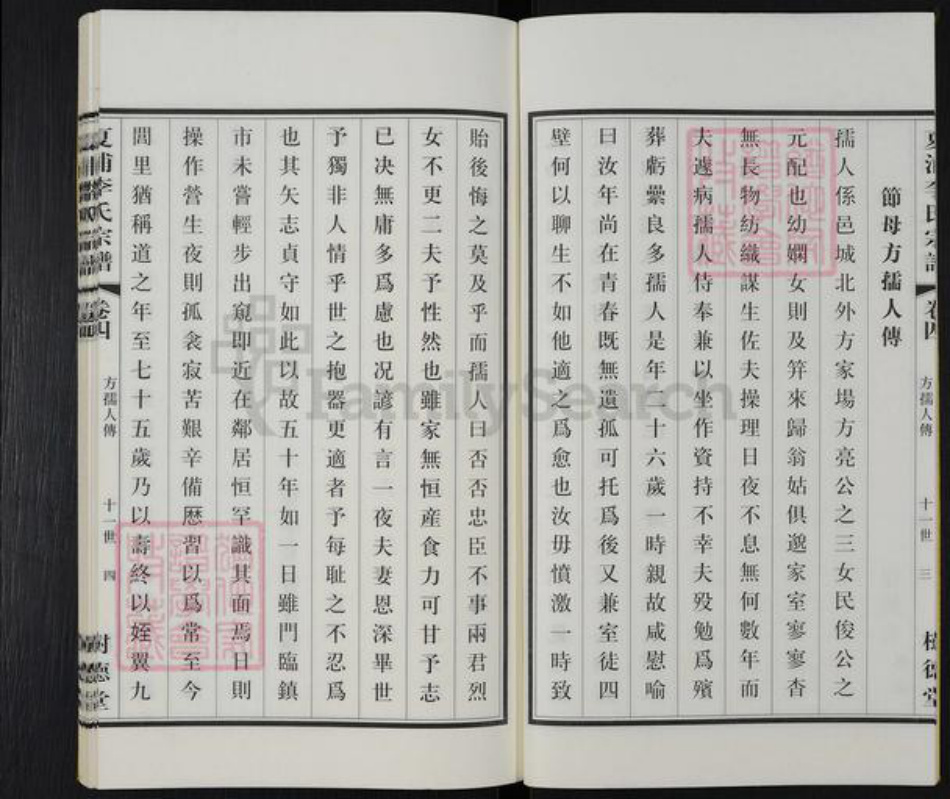 節母方孺人傳
孺人係邑城北外方家場方亮公之三女民俊公之
元配也幼嫻女則及笄來歸翁姑俱邈家室寥寥杳
無長物紡織謀生佐夫操理日夜不息無何數年而
夫遽病孺人侍奉兼以坐作資持不幸夫歿勉爲殯
葬虧纍良多孺人是年二十六歲一時親故咸慰喻
曰汝年尚在青春既無遺孤可托爲後又兼室徒四
壁何以聊生不如他適之爲愈也汝毋憤激一時致
方孺人傳
十一世
三
貽後悔之莫及乎而孺人曰否否忠臣不事兩君烈
女不更二夫予性然也雖家無恒産食力可甘予志
已决無庸多爲慮也况諺有言一夜夫妻恩深畢世
予獨非人情乎世之抱器更適者予每耻之不忍爲
也其矢志貞守如此以故五十年如一日雖門臨鎮
市未嘗輕步出窺即近在鄰居恒罕識其面焉日則
操作營生夜則孤衾寂苦艱辛備歷習以爲常至今
閭里猶稱道之年至七十五歲乃以壽終以姪翼九
夏浦李氏宗譜
卷四
方孺人傳
十一世
四
樹德堂
FamilySearch